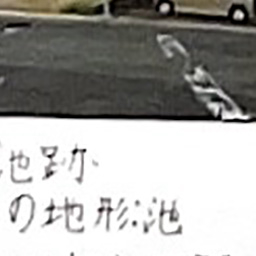 池跡
の地形:池